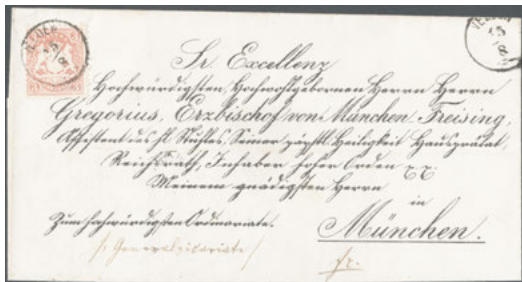 VELDEN
15
8
VELDEN
15
8
Sr. Excellenz
Hochwürdigsten, Hochwohlgebornen Herrn Herrn
Gregorius, Erzbischof von München-Freising,
Assistent des hl. Stuhles, Seiner päpstl. Heiligkeit Hausprälat,
Reichsrath, Inhaber hoher Orden x.x.
Meinem gnädigsten Herrn
in
Zum hochwürdigsten Ordinariate.
München.
/: Generalvicariate /
fr.